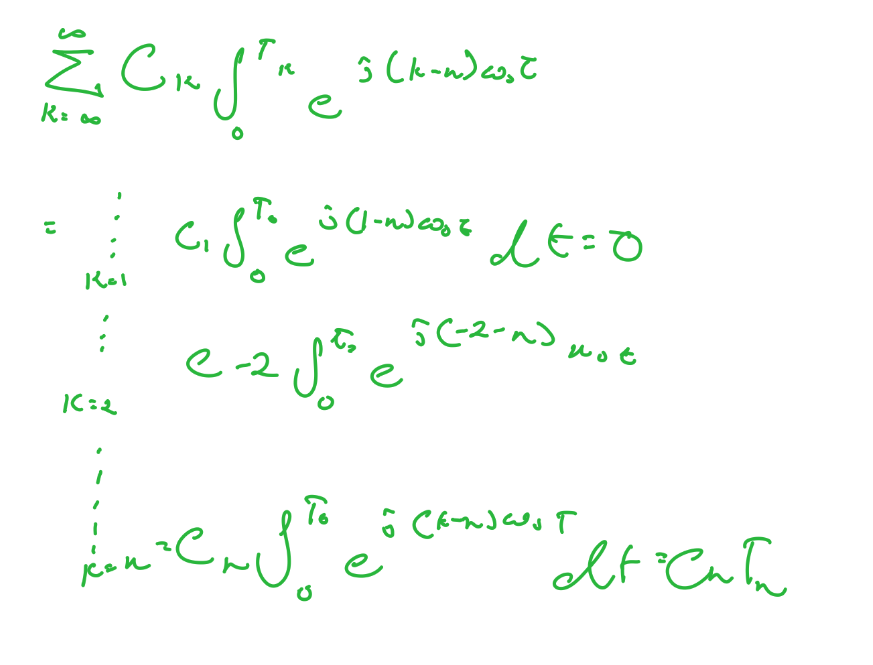 ∞
∑ C_k ∫_0^{T_k} e^{j(k-n)ω₀t}
k=∞
= ⋮ C₁ ∫_0^{T₀} e^{j(1-n)ω₀t} dt = 0
k=1
⋮ C-2 ∫_0^{T₀} e^{j(-2-n)} ω₀t
k=2
⋮
k=n = C_n ∫_0^{T₀} e^{j(k-n)ω₀T} dt = C_n T_n